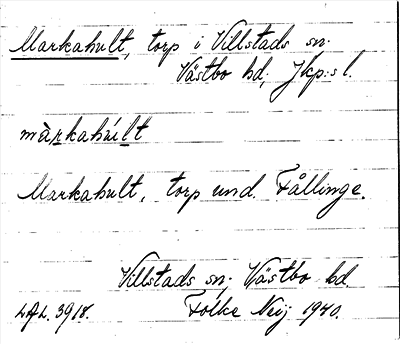 Markahult, torp i Villstads sn.
Västbo hd, Jkp:s l.
màrkahúlt
Markahult, torp und. Fållinge.
Villstads sn, Västbo hd
LAL. 3918. Folke Neij 1940.